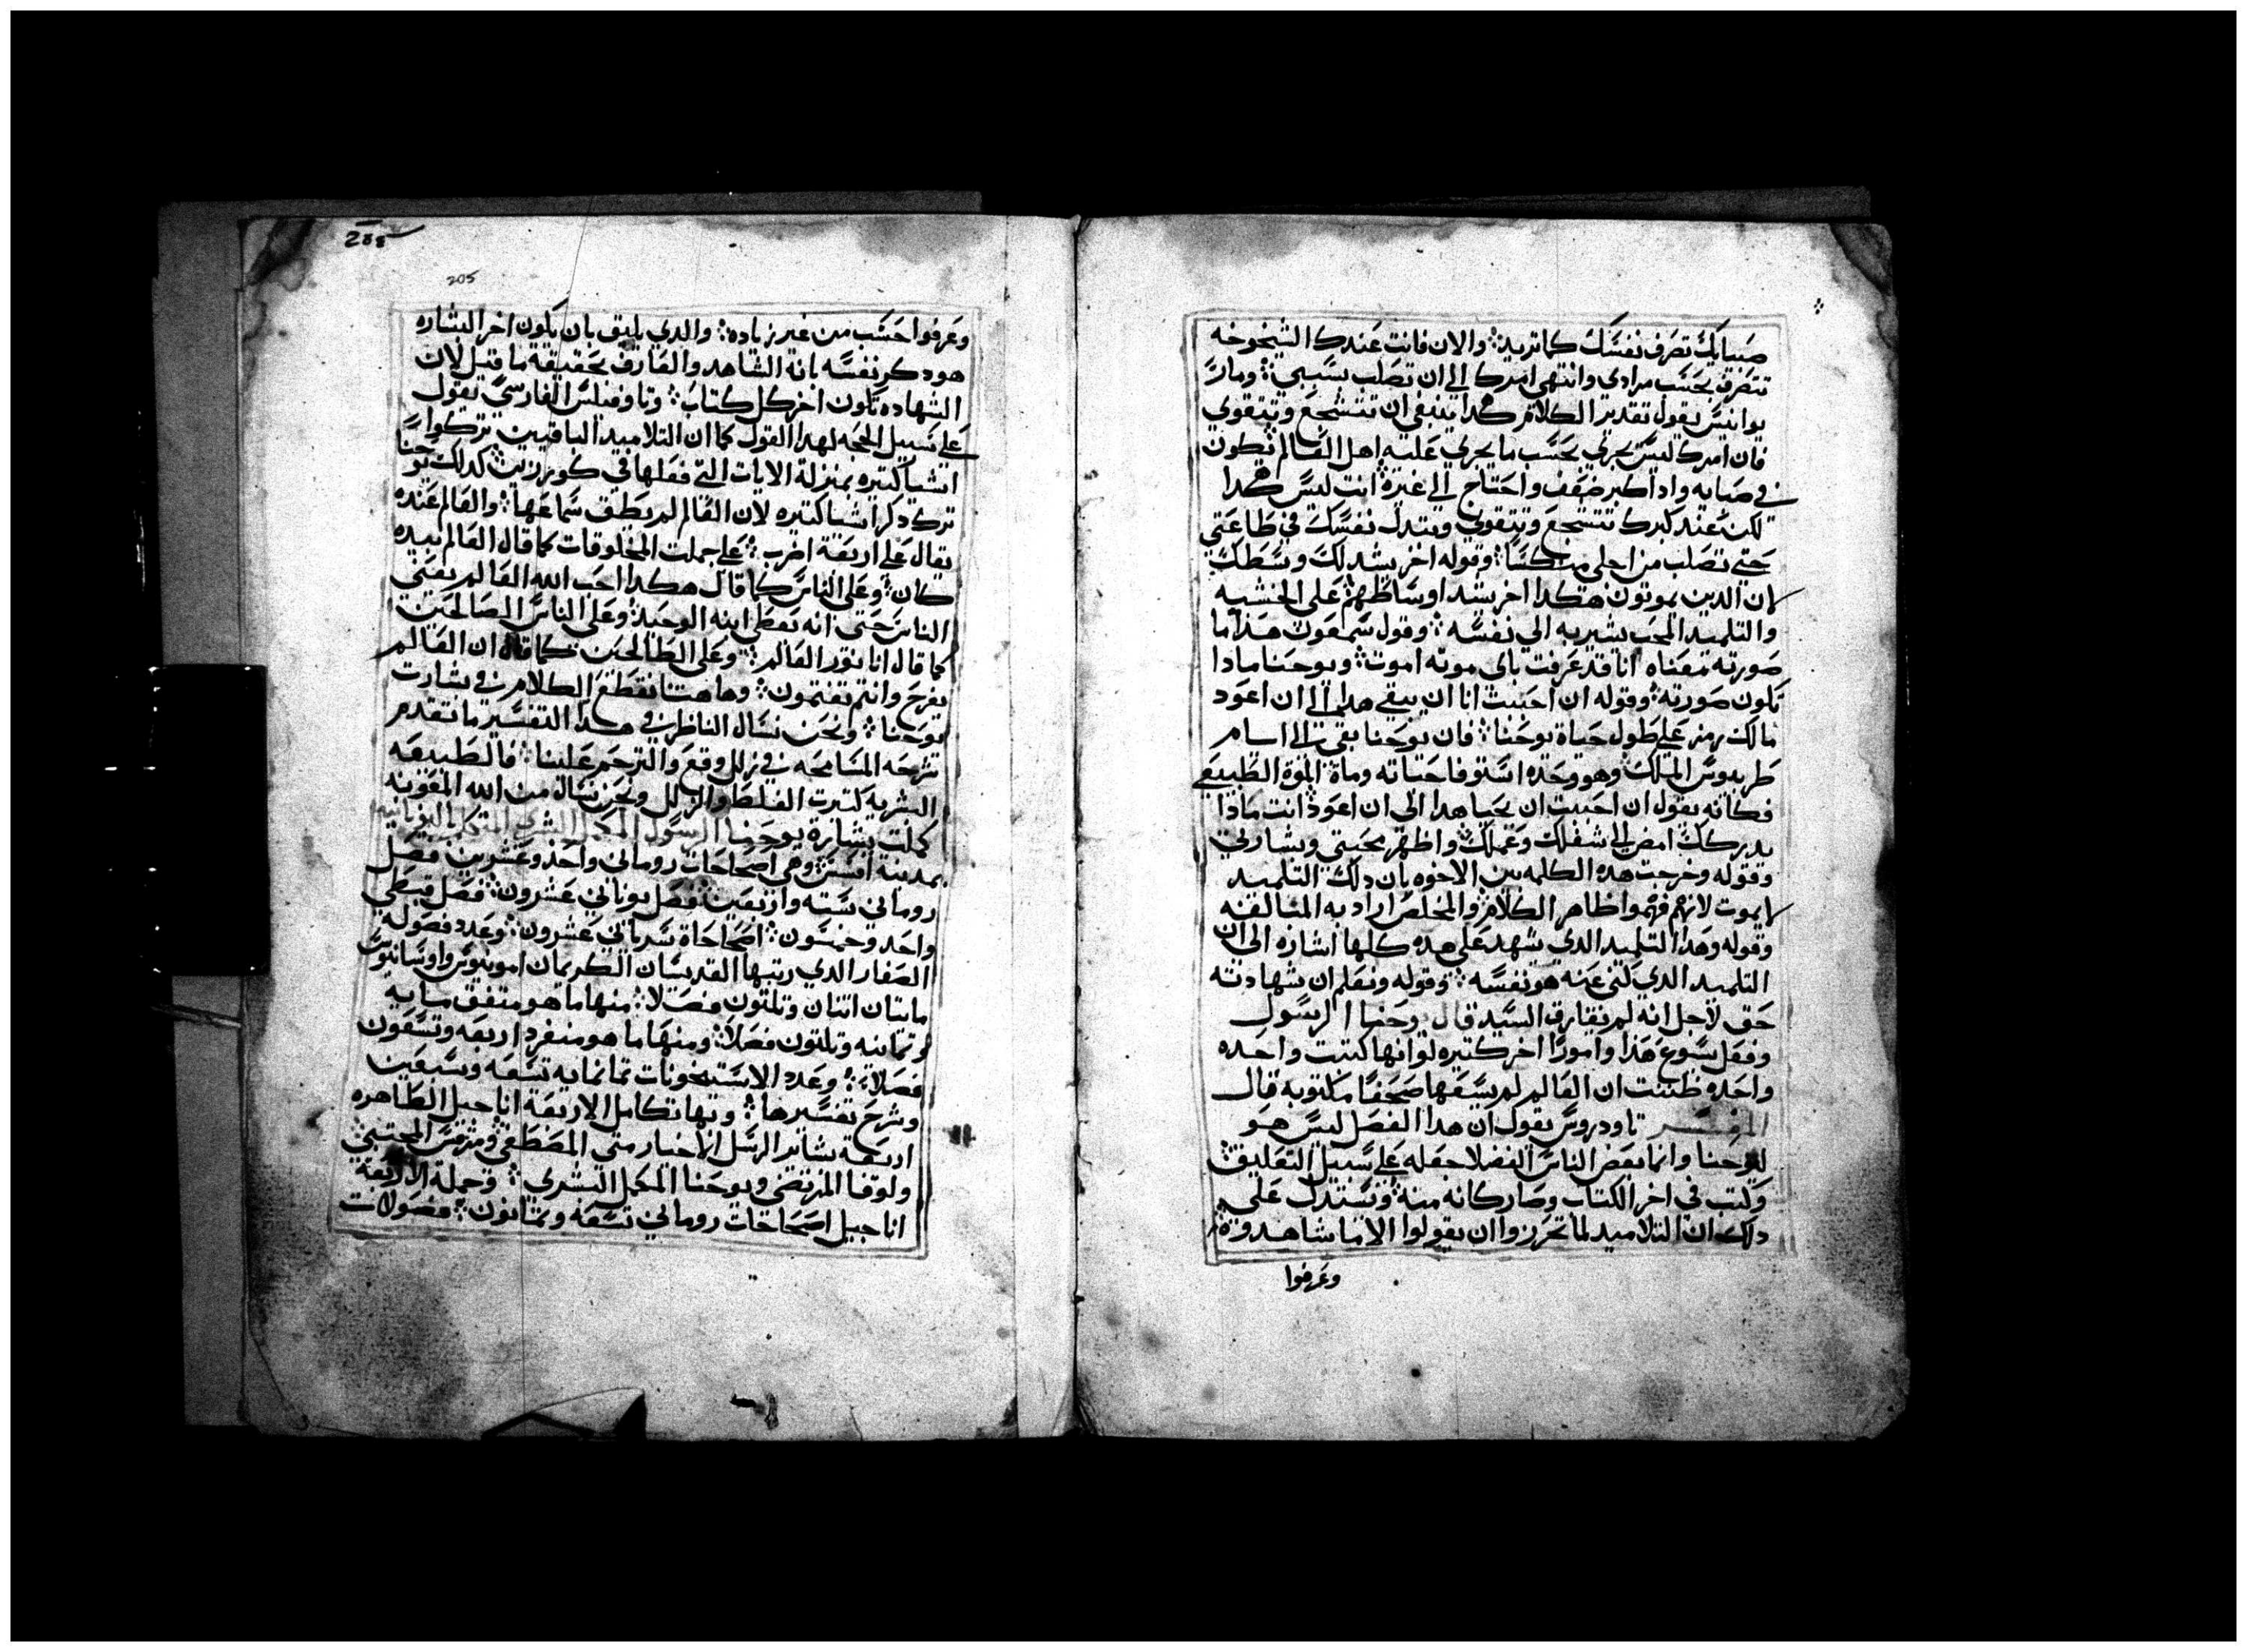 صبيانك تصرف نفسك كما تريد؛ والان فانت عندك الشيخوخه
تتصرف بحسب مرادي وانتهي امرك الي ان تصلب بسببي؛ ومار
يوانيس يقول تقدير الكلام هكدا ينبغي ان تتشجع وتتقوي
فان امرك ليس يجري بحسب ما يجري عليه اهل العالم تكون
في صبايه وادا كبر ضعف واحتاج الي غيره؛ انت ليس هكدا
لكن عند كبرك تتشجع وتتقوي وتبتدل نفسك في طاعتي
حتي تصلب من اجلي منكسًا؛ وقوله اخر يشد لك وسطك
لان الدين يموتون هكدا اخر يشد اوساطهم علي الخشبه
والتلميد المحب يشير به الي نفسه؛ وقول سمعون هذا ما
صورته معناه انا قد عرفت باي موته اموت؛ ويوحنا مادا
تكون صورته؛ وقوله ان احببت انا ان يبقي هدا الي ان اعود
مالك رمز علي طول حياة يوحنا؛ فان يوحنا بقي الي ايام
طريدوس الملك وهو وحده استوفا حياته ومات الموت الطبيعي
فكانه يقول ان احببت ان يحيا هدا الي ان اعود انت مادا
يدركك امض الي شغلك وعملك واظهر محبتي وبشارتي
وقوله وخرجت هده الكلمه بين الاخوه بان دلك التلميد
لا يموت لانهم فهموا ظاهر الكلام والمخلص اراد به المبالغه
وقوله وهدا التلميد الدي شهد علي هده كلها اشاره الي ان
التلميد الدي كني عنه هو نفسه؛ وقوله ونعلم ان شهادته
حق لاجل انه لم يفارق السيد قال يوحنا الرسول
وفعل يسوع هذا وامورًا اخر كتيره لو انها كتبت واحده
واحده ظننت ان العالم لم يسعها صحفًا مكتوبه قال
المفسر تاودروس يقول ان هدا الفصل ليس هو
ليوحنا وانما بعض الناس الفضلا جعله علي سبيل التعليق؛
وكتب في اخر الكتاب وصار كانه منه؛ ونستدل علي
دلك ان التلاميد لما تحرزوا ان يقولوا الا ما شاهدوه
وعرفوا
205
وعرفوا حسب من غير زياده؛ والدي يليق بان يكون اخر البشاره
هو دكر نفسه بانه الشاهد والعارف بحقيقة ما قيل لان
الشهاده تكون اخر كل كتاب؛ وتاوفيلس الفارسي يقول
علي سبيل الحجه لهدا القول كما ان التلاميد الباقيين تركوا
اشيا كتيره بمنزلة الايات التي فعلها في كورزين كدلك يوحنا
ترك دكر اشيا كتيره لان العالم لم يطق سماعها؛ والعالم عنده
يقال علي اربعة اضرب؛ علي جملت المخلوقات كما قال العالم بيده
كان؛ وعلي الناس كما قال هكدا احب الله العالم يعني
الناس حتي انه يعطي ابنه الوحيد؛ وعلي الناس الصالحين
كما قال انا نور العالم؛ وعلي الطالحين كما قال ان العالم
يفرح وانتم تغتمون؛ وهاهنا نقطع الكلام في بشارت
يوحنا؛ ونحن نسال الناظر في هدا التفسير ما تقدم
شرحه المسامحه في زلل وقع والترحم علينا؛ فالطبيعه
البشريه كتيرت الغلط والزلل ونحن نساله من الله المعونه
كملت بشارة يوحنا الرسول
بمدينة افسس؛ وهي اصحاحات روماني واحد وعشرين فصل
روماني سته واربعين؛ فصل يوناني عشرون؛ فصل قبطي
واحد وخمسون؛ اصحاحاة سرياني عشرون؛ وعدد فصوله
الصغار الدي رتبها القديسان الكريمان امونيوس واوسانيوس
مايتان اتنان وتلتون فصلا؛ منها ما هو متفق مايه
وتمانيه وتلتون فصلاً؛ ومنها ما هو منفرد اربعه وتسعون
فصلاً؛ وعدد الاستيخونات تمانمايه تسعه وسبعين
وشرح تفسيرها؛ وبها تكامل الاربعة اناجيل الطاهره
اربعة بشائر الرسل الاخيار متي المصطفي ومرقس المجتبي؛
ولوقا المرتضي ويوحنا المكمل البشري؛ وجملة الاربعة
اناجيل اصحاحات روماني تسعه وتمانون؛ فصولات